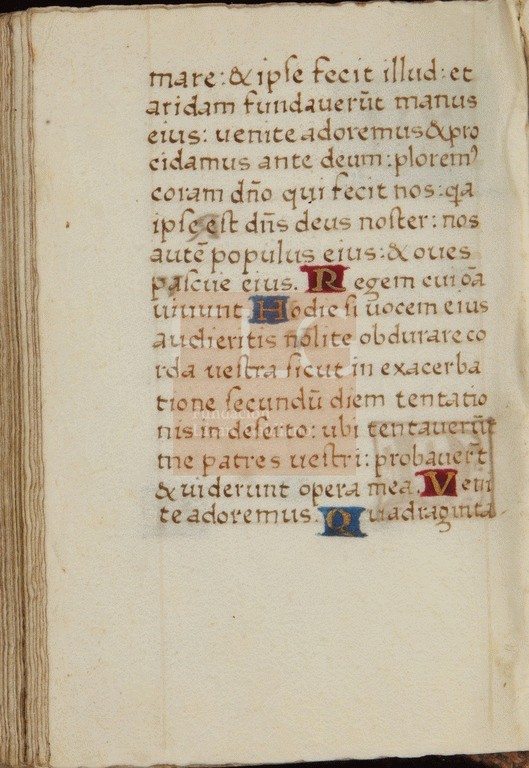 mare: & ipse fecit illud: et
aridam fundauerūt manus
eius: uenite adoremus & pro
cidamus ante deum: plorem᾽
coram dño qui fecit nos: q̃a
ipse est dñs deus noster: nos
autē populus eius: & oues
pascue eius. Regem cui oā
uiuunt. Hodie si uocem eius
audieritis nolite obdurare co
rda uestra sicut in exacerba
tione secundū diem tentatio
nis in deserto: ubi tentauerūt
me patres uestri: probauer̃t
& uiderunt opera mea. Veni
te adoremus. Quadraginta
Fundación